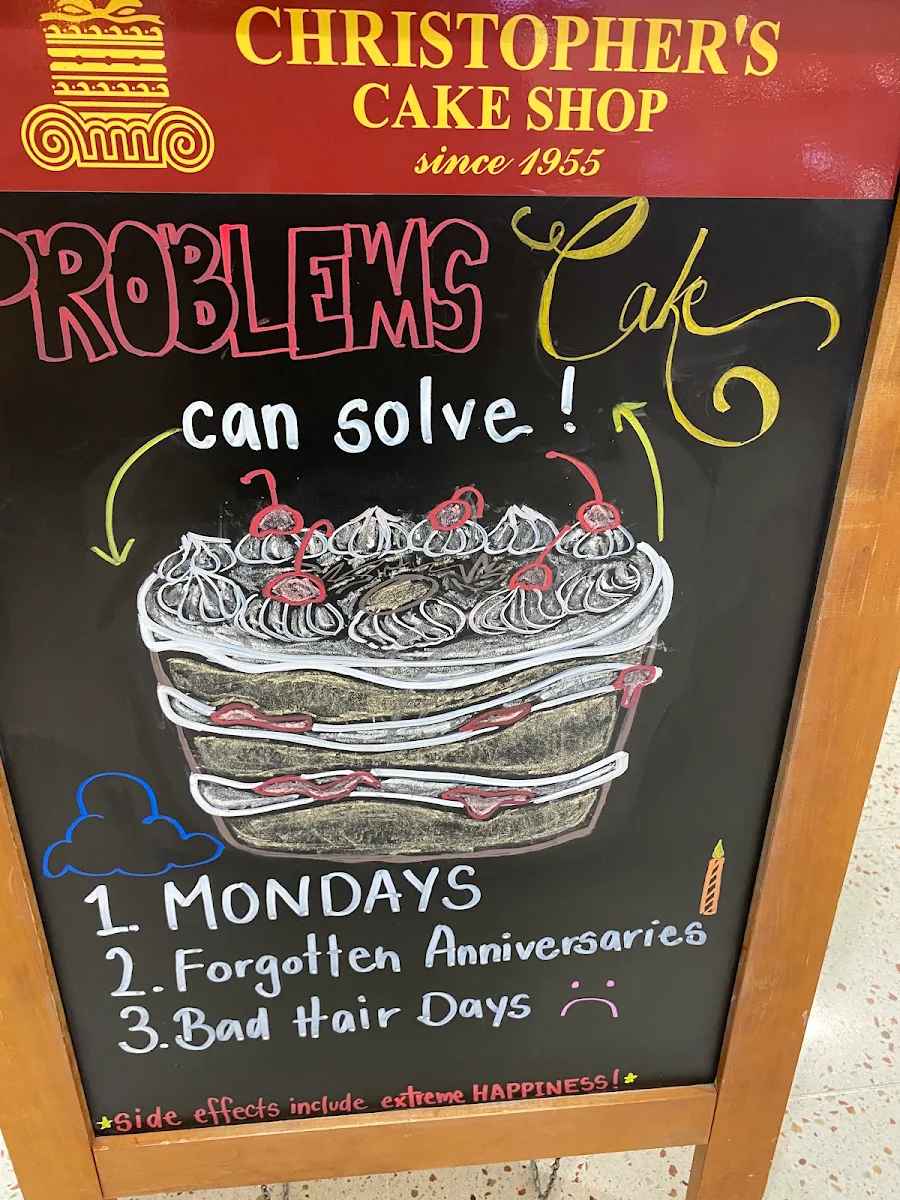 CHRISTOPHER'S
CAKE SHOP
since 1955
PROBLEMS Cake
can solve!
1. MONDAYS
2. Forgotten Anniversaries
3. Bad Hair Days
*side effects include extreme HAPPINESS!*